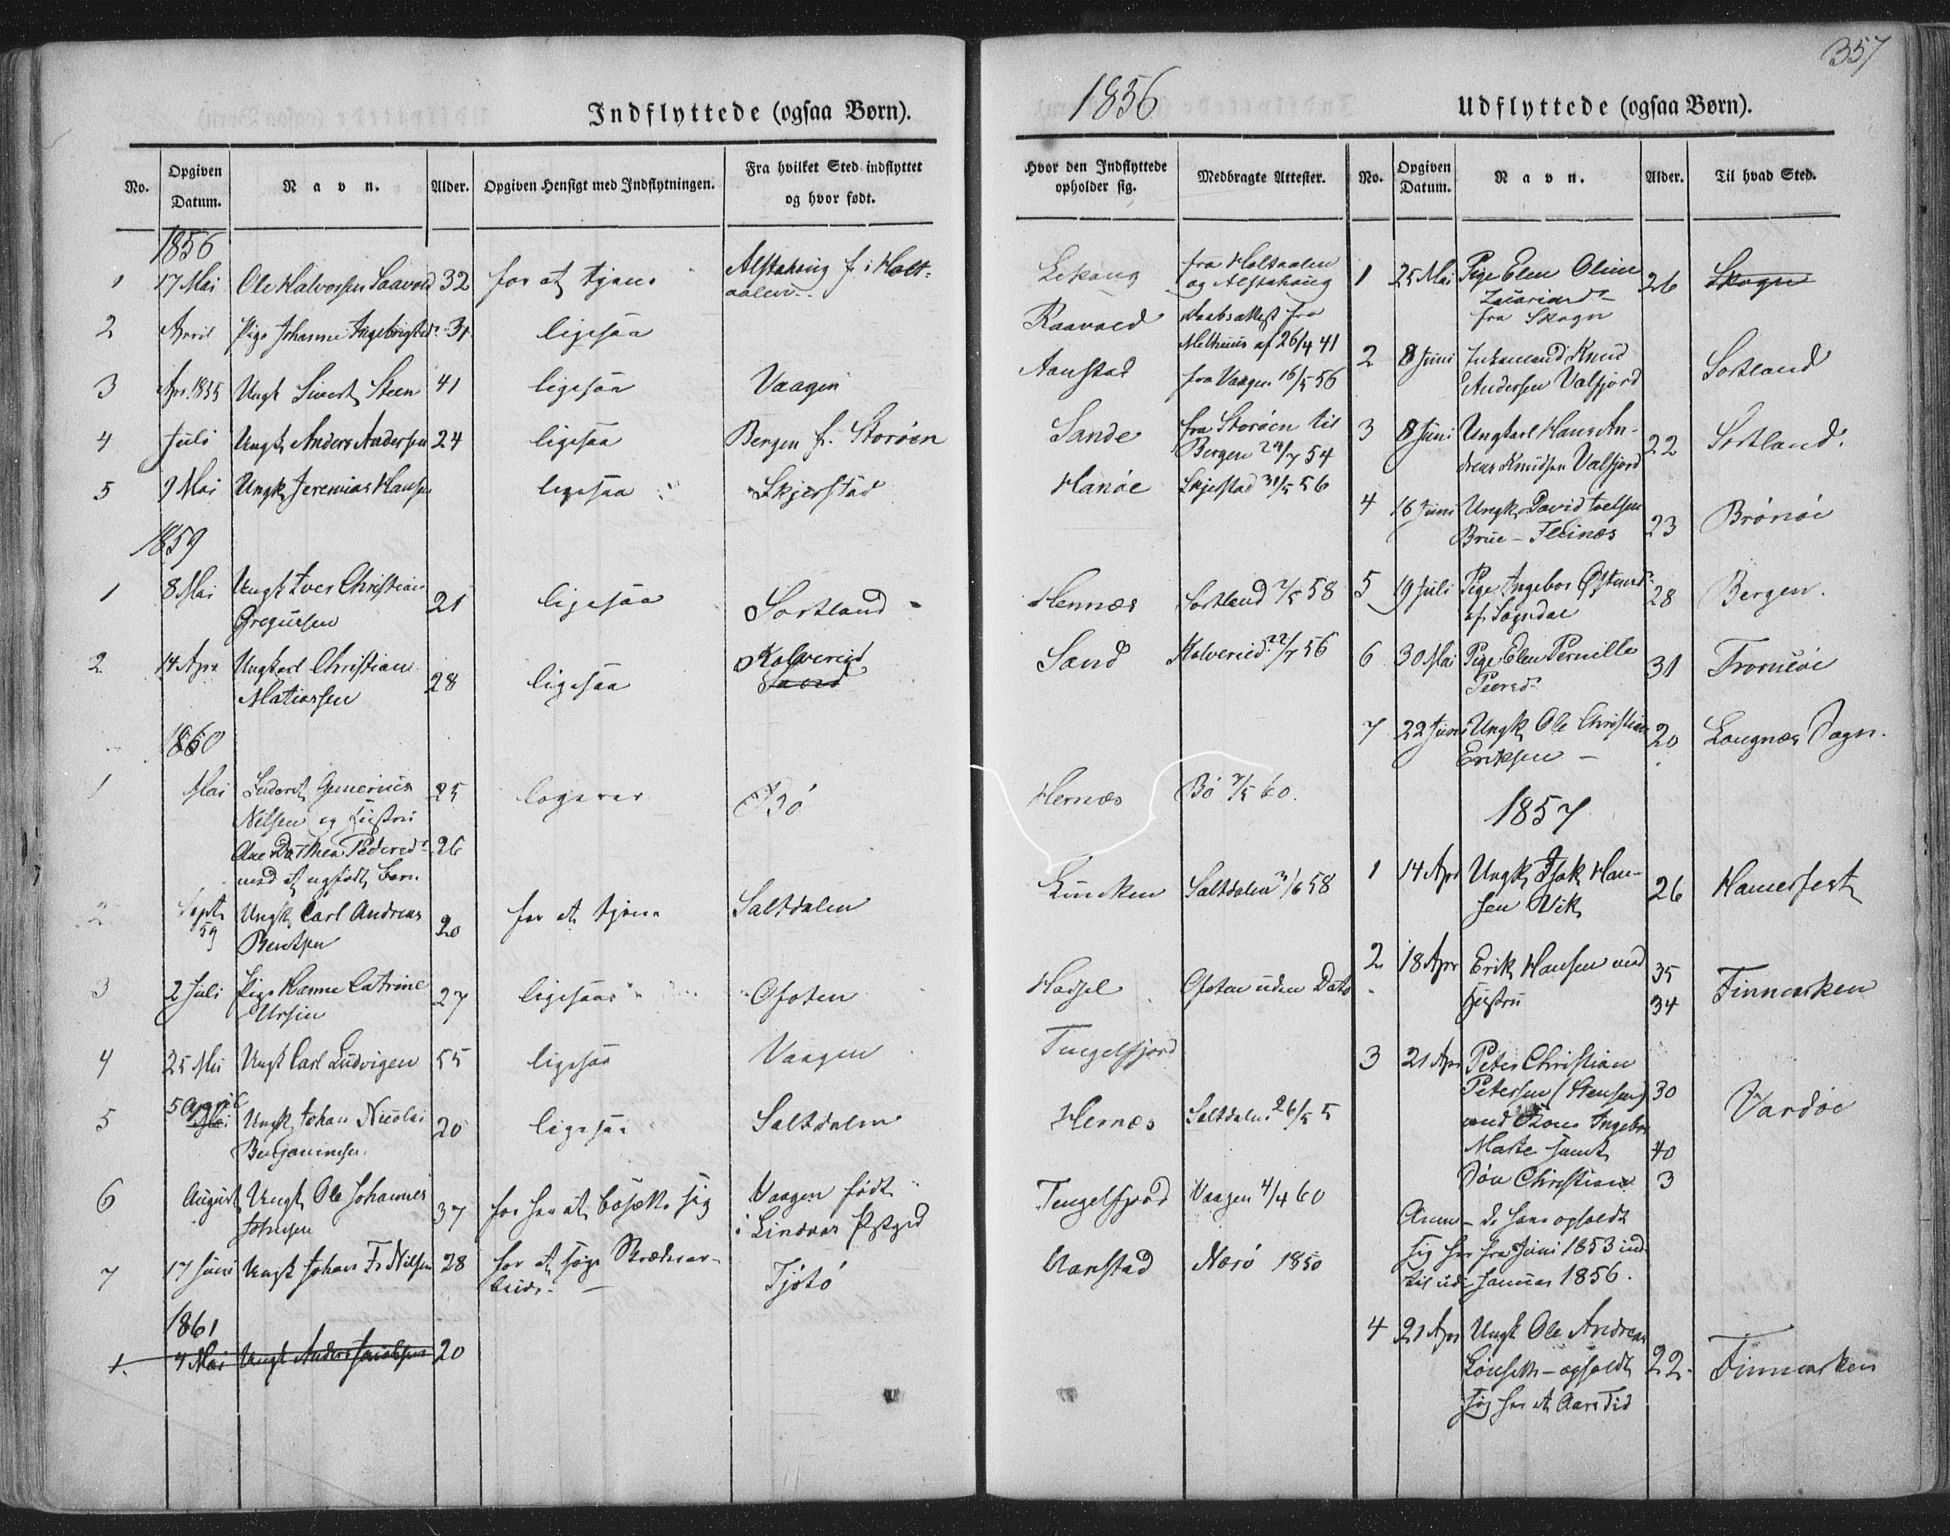 357
Indflyttede (ogsaa Børn).
No.
Opgiven Datum.
Navn.
Alder.
Opgiven Hensigt med Indflytningen.
Fra hvilket Sted indflyttet og hvor født.
1856
1 17 Mai Ole Halvorsen 32 for at tjene Alstahaug f. i Holt-
aalen
2 April Pige Johanne Ingebrigtsd. 31 ligesaa
3 Apr. 1855 Ungk Sivert Steen 41 ligesaa Vaagen
4 Juli Ungk Anders Andersen 24 ligesaa Bergen f. Storöen
5 9 Mai Ungk Jeremias Hansen ligesaa Skjerstad
1859
1 8 Mai Ungk Iver Christian
Gregusen 21 ligesaa Sortland
2 14 Apr Ungkarl Christian
Matiassen 28 ligesaa Kolvereid
Sand
1860
1 Mai Gunerius 25 logerer Bö
Nilsen og Hustru
Ane Dorthea Pedersd. 26
med et ugfödt Barn
2 Sept 59 Ungk Carl Andreas
Bentsen 20 for at tjene Saltdalen
3 2 Juli Pige Hanne Catrine
Ursin 27 ligesaa Ofoten
4 25 Mai Ungk Carl Ludvigen 55 ligesaa Vaagen
5 5 April Ungk Johan Nicolai
Benjaminsen 20 ligesaa Saltdalen
6 August Ungk Ole Johannes
Johnsen 37 for her at bosætte sig Vaagen födt
i Lindaas Pstgjd
7 17 Juni Ungk Johan Fr Nilsen 28 for at söge Skrædderar-
beide Tjötö
1861
1. 4 Mai Ungk Anders Jacobsen 20
1856
Udflyttede (ogsaa Børn).
Hvor den Indflyttede opholder sig.
Medbragte Attester.
No.
Opgiven Datum.
Navn.
Alder.
Til hvad Sted.
Lekang fra Holtaalen
og Alstahaug
Raavold Daabsattest fra
Melhuus af 26/4 41
Aanstad fra Vaagen 16/5 56
Sande fra Storöen til
Bergen 24/7 54
Hanöe Skjerstad 31/5 56
Hennes Sortland 2/5 58
Sand Kolvereid 22/7 56
Hernæs Bö 7/5 60.
Saltdalen 3/6 58
Hadsel Ofoten uden Dato
Tengelfjord
Hernæs Saltdalen 26/5 5
Tengelfjord Vaagen 4/4 60
Aanstad Nærö 1850
1 25 Mai Pige Elen Oline
Zacariasd.
fra Skogn 26 Skogn
2 8 Juni Inderland Knud
Andersen Valfjord Sortland
3 8 Juni Ungkarl Hans An-
dreas Knudsen Valfjord 22 Sortland.
4 16 Juni Ungk David
Brue - 23 Brönöe
5 19 Juli Pige Ingebor
af Sogndal 28 Bergen.
6 30 Mai Pige Elen Pernille
Pedersd. 31 Tromsöe
7 22 Juni Ungk Ole Christian
Eriksen - 20 Langnæs Sogn.
1857
1 14 Apr Ungk Isak Han-
sen Vik 26 Hamerfest
2 18 Apr Erik Hansen med 35
Hustru 34 Finmarken
3 21 Apr Peter Christian
Petersen (Hensen) 30
med Kone Ingebor
Marte samt 40
Sön Christian 3 Vardöe
Anm - De have opholdt
sig her fra Juni 1853 ind
til ud i Januar 1856.
4 21 Apr Ungk Ole Andreas
Lönsett - opholdt 22. Finmarken
sig her et Aars Tid